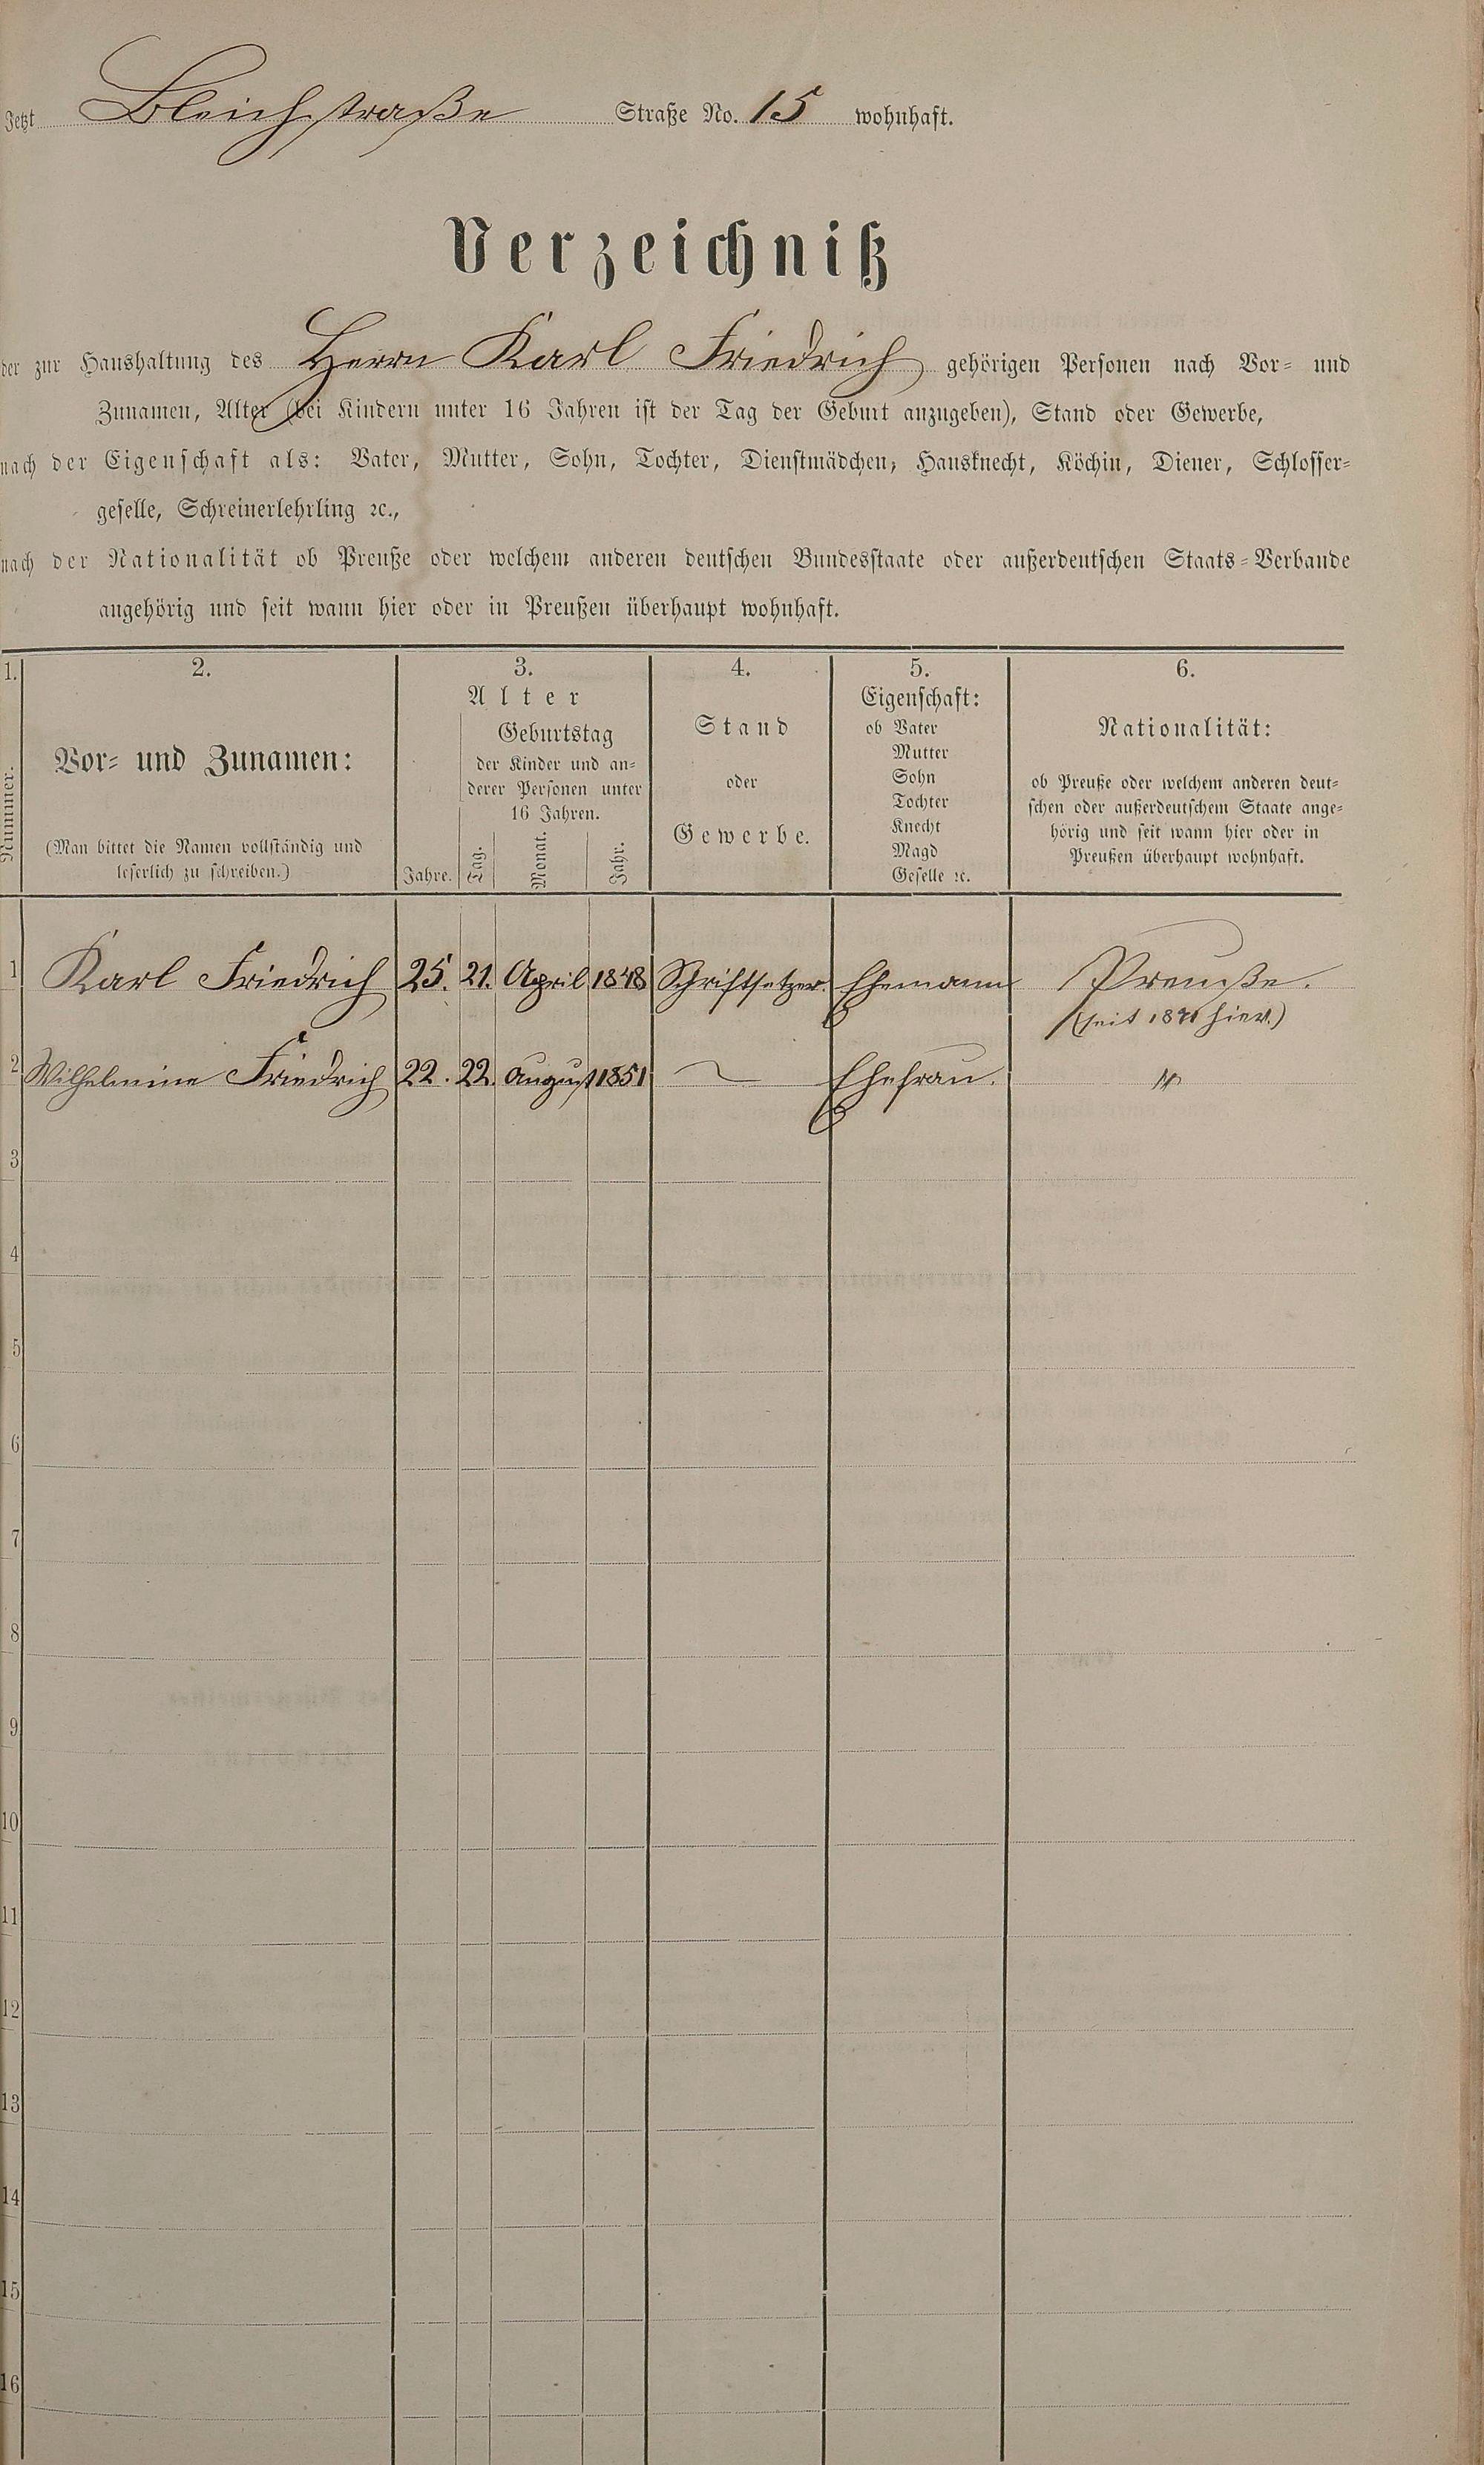 Jetzt Bleichstraße Straße No. 15 wohnhaft.
Verzeichniß
der zur Haushaltung des Herrn Karl Friedrich gehörigen Personen nach Vor- und
Zunamen, Alter (bei Kindern unter 16 Jahren ist der Tag der Geburt anzugeben), Stand oder Gewerbe,
nach der Eigenschaft als: Vater, Mutter, Sohn, Tochter, Dienstmädchen, Hausknecht, Köchin, Diener, Schlosser-
geselle, Schreinerlehrling ꝛc.,
nach der Nationalität ob Preuße oder welchem anderen deutschen Bundesstaate oder außerdeutschen Staats-Verbande
angehörig und seit wann hier oder in Preußen überhaupt wohnhaft.
1.
Nummer.
2.
Vor- und Zunamen:
(Man bittet die Namen vollständig und
leserlich zu schreiben.)
3.
Alter
Geburtstag
der Kinder und an-
derer Personen unter
16 Jahren.
Jahre. Tag. Monat. Jahr.
4.
Stand
oder
Gewerbe.
5.
Eigenschaft:
ob Vater
Mutter
Sohn
Tochter
Knecht
Magd
Geselle ꝛc.
6.
Nationalität:
ob Preuße oder welchem anderen deut-
schen oder außerdeutschem Staate ange-
hörig und seit wann hier oder in
Preußen überhaupt wohnhaft.
1 Karl Friedrich 25. 21. April 1848 Schriftsetzer. Ehemann Preuße.
(seit hier.)
2 Wilhelmine Friedrich 22. 22. August 1851 Ehefrau. "
3
4
5
6
7
8
9
10
11
12
13
14
15
16